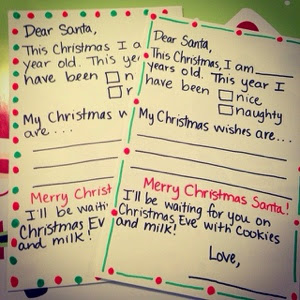 Dear Santa,
This Christmas I a
year old. This year
have been
My Christmas w
are....
Merry Christ
I'll be waiti
Christmas Eve
and milk!
Dear Santa,
This Christmas, I am
years old. This year I
have been nice
naughty
My Christmas wishes are....
Merry Christmas Santa!
I'll be waiting for you on
Christmas Eve with Cookies
and milk!
Love,